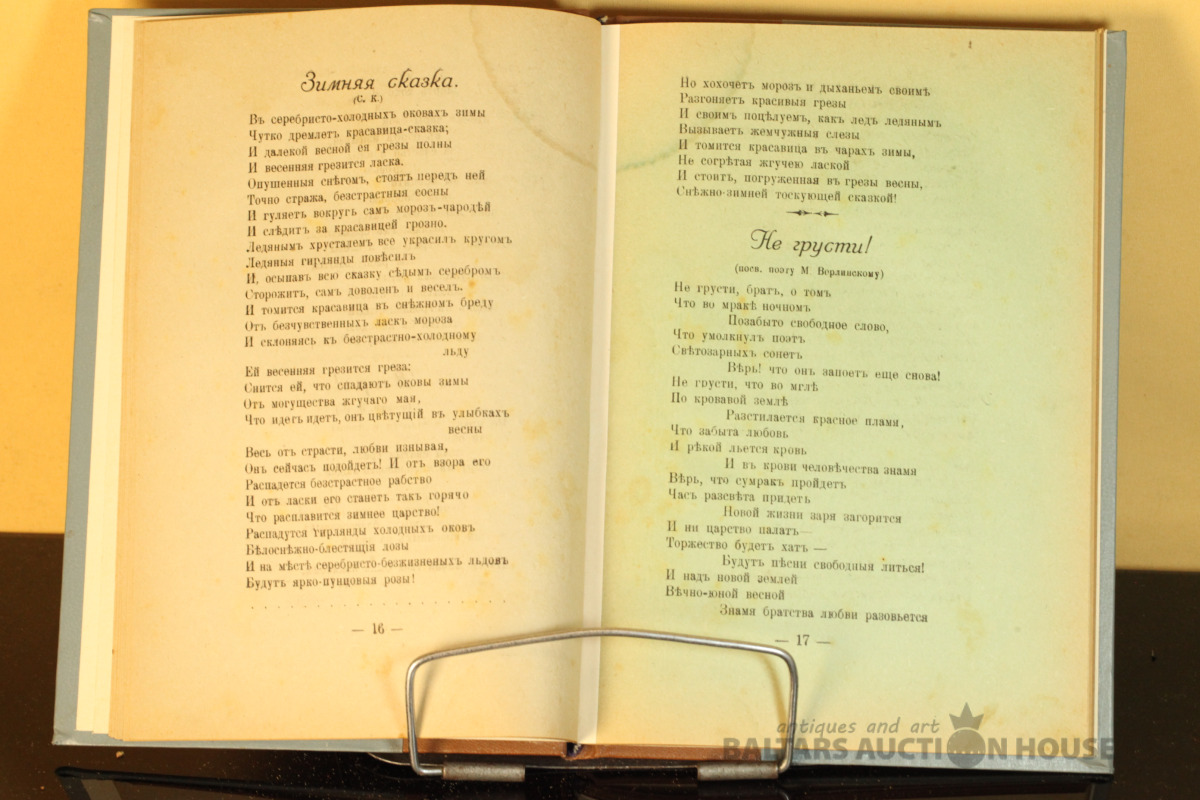 Зимняя сказка.
(С. К.)
Въ серебристо-холодныхъ оковахъ зимы
Чутко дремлетъ красавица-сказка;
И далекой весной ея грезы полны
И весенняя грезится ласка.
Опушенныя снѣгомъ, стоятъ передъ ней
Точно стража, безстрастныя сосны
И гуляетъ вокругъ самъ морозъ-чародѣй
И слѣдитъ за красавицей грозно.
Ледянымъ хрусталемъ все украсилъ кругомъ
Ледяныя гирлянды повѣсилъ
И, осыпавъ всю сказку сѣдымъ серебромъ
Сторожитъ, самъ доволенъ и веселъ.
И томится красавица въ снѣжномъ бреду
Отъ безчувственныхъ ласкъ мороза
И склоняясь къ безстрастно-холодному
льду
Ей весенняя грезится греза:
Снится ей, что спадаютъ оковы зимы
Отъ могущества жгучаго мая,
Что идетъ идетъ, онъ цвѣтущій въ улыбкахъ
весны
Весь отъ страсти, любви изнывая,
Онъ сейчасъ подойдетъ! И отъ взора его
Распадется безстрастное рабство
И отъ ласки его станетъ такъ горячо
Что расплавится зимнее царство!
Распадутся гирлянды холодныхъ оковъ
Бѣлоснѣжно-блестящія лозы
И на мѣстѣ серебристо-безжизненыхъ льдовъ
Будутъ ярко-пунцовыя розы!
. . . . . . . . . . . . . . . .
— 16 —
Но хохочетъ морозъ и дыханьемъ своимъ
Разгоняетъ красивыя грезы
И своимъ поцѣлуемъ, какъ ледъ ледянымъ
Вызываетъ жемчужныя слезы
И томится красавица въ чарахъ зимы,
Не согрѣтая жгучею лаской
И стоитъ, погруженная въ грезы весны,
Снѣжно-зимней тоскующей сказкой!
Не грусти!
(посв. поэту М. Верлинскому)
Не грусти, братъ, о томъ
Что во мракѣ ночномъ
Позабыто свободное слово,
Что умолкнулъ поэтъ
Свѣтозарныхъ сонетъ
Вѣрь! что онъ запоетъ еще снова!
Не грусти, что во мглѣ
По кровавой землѣ
Разстилается красное пламя,
Что забыта любовь
И рѣкой льется кровь
И въ крови человѣчества знамя
Вѣрь, что сумракъ пройдетъ
Часъ разсвѣта придетъ
Новой жизни заря загорится
И ни царство палатъ—
Торжество будетъ хатъ —
Будутъ пѣсни свободныя литься!
И надъ новой землей
Вѣчно-юной весной
Знамя братства любви разовьется
— 17 —
antiques and art
BALTARS AUCTION HOUSE